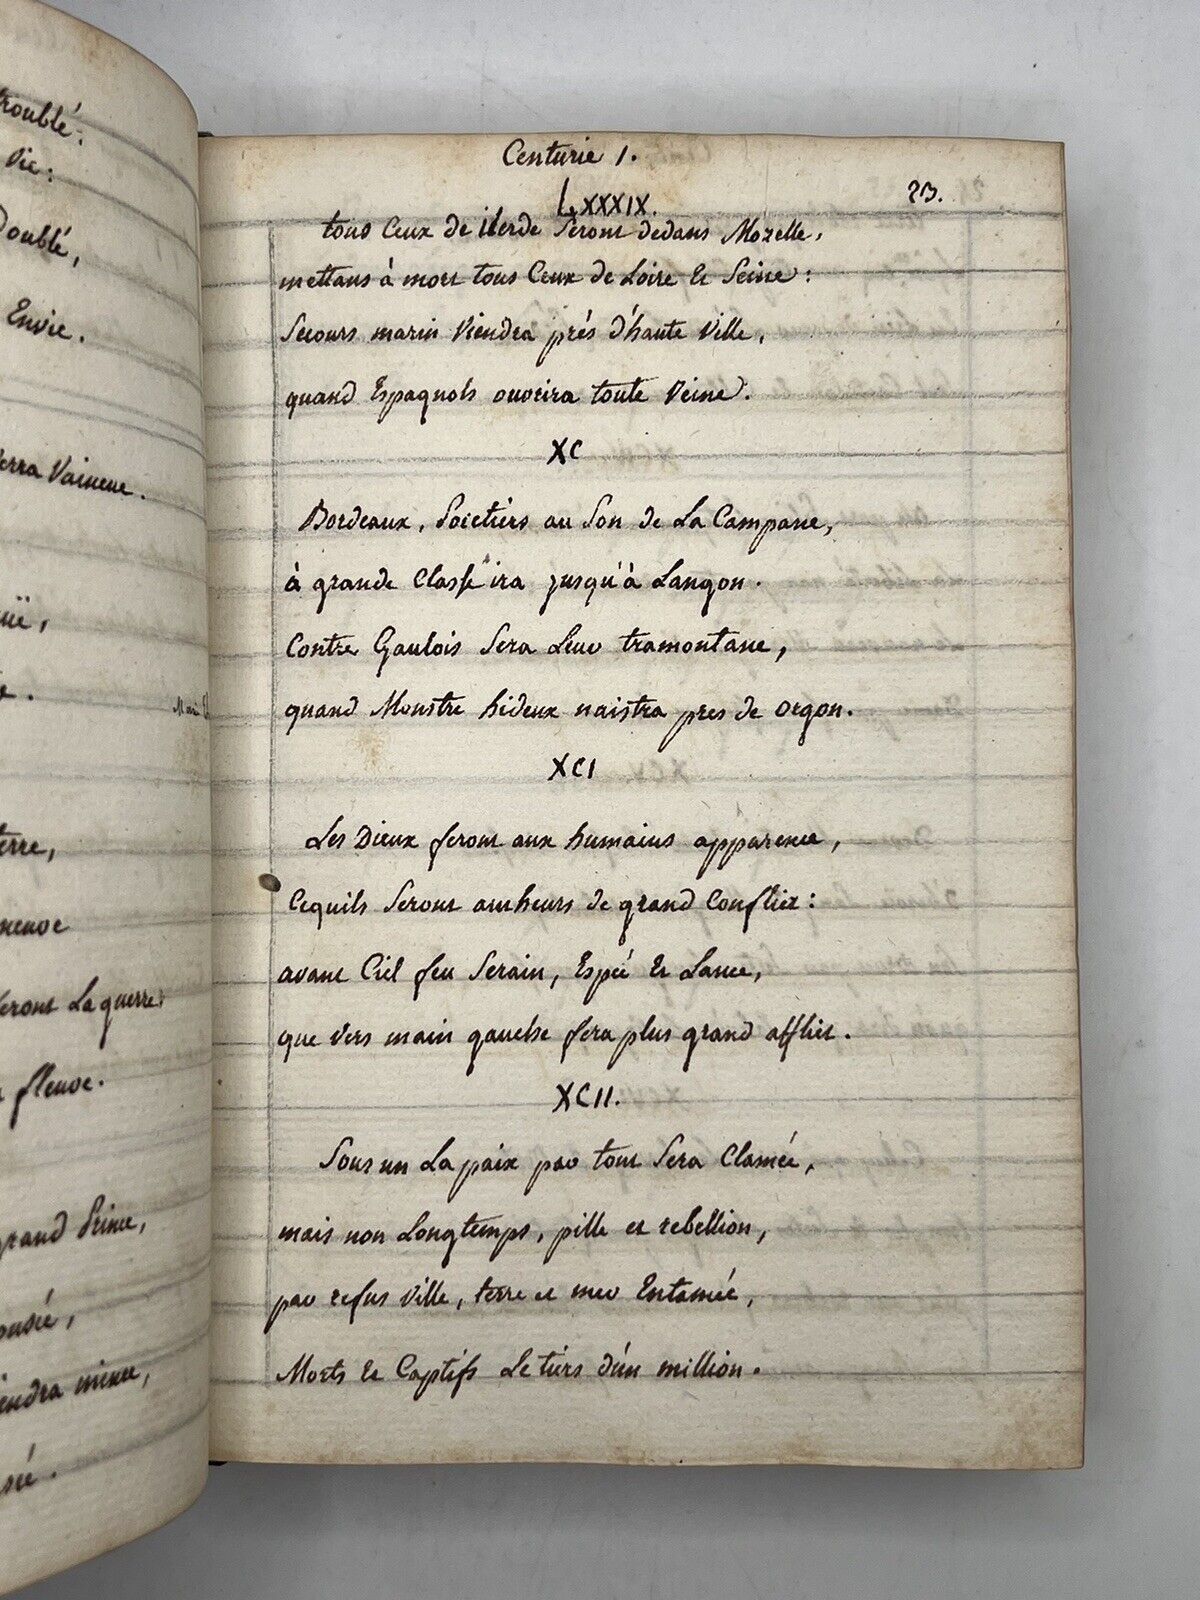 roublé:
Vie:
Doublé,
Envie.
erra Vaincue.
üe,
e.
terre,
neuve
feront La guerre:
fleuve.
grand Prince,
ousée,
iendra mince,
sée.
Centurie 1.
23.
LXXXIX.
tous Ceux de ilerde Seront dedans Mozelle,
mettans à mort tous Ceux de Loire & Seine:
Secours marin Viendra prés d'haute Ville,
quand Espagnols ouvrira toute Veine.
XC
Bordeaux, Poictiers au Son de La Campane,
à grande Classe ira jusqu'à Langon.
Contre Gaulois Sera Leur tramontane,
quand Monstre hideux naistra pres de orgon.
XCI
Les Dieux feront aux humains apparence,
Cequils Seront autheurs de grand Conflict:
avant Ciel feu Serain, Espée & Lance,
que vers main gauche fera plus grand afflict.
XCII.
Sous un La paix par tout Sera Clamée,
mais non Longtemps, pille et rebellion,
par refus Ville, terre et mer Entamée,
Morts & Captifs Le tiers d'un million.